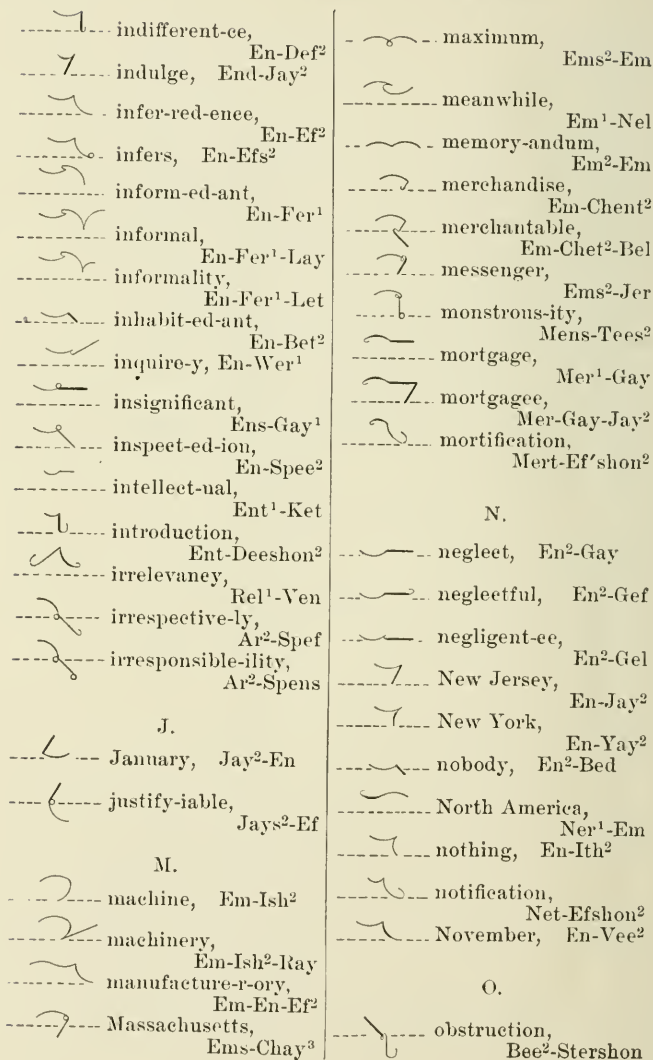 indifferent-ce,
En-Def²
indulge, End-Jay²
infer-red-ence,
En-Ef²
infers, En-Efs²
inform-ed-ant,
En-Fer¹
informal,
En-Fer¹-Lay
informality,
En-Fer¹-Let
inhabit-ed-ant,
En-Bet²
inquire-y, En-Wer¹
insignificant,
Ens-Gay¹
inspect-ed-ion,
En-Spee²
intellect-ual,
Ent¹-Ket
introduction,
Ent-Deeshon²
irrelevancy,
Rel¹-Ven
irrespective-ly,
Ar²-Spef
irresponsible-ility,
Ar²-Spens
J.
January, Jay²-En
justify-iable,
Jays²-Ef
M.
machine, Em-Ish²
machinery,
Em-Ish²-Ray
manufacture-r-ory,
Em-En-Ef²
Massachusetts,
Ems-Chay³
maximum,
Ems²-Em
meanwhile,
Em¹-Nel
memory-andum,
Em²-Em
merchandise,
Em-Chent²
merchantable,
Em-Chet²-Bel
messenger,
Ems²-Jer
monstrous-ity,
Mens-Tees²
mortgage,
Mer¹-Gay
mortgagee,
Mer-Gay-Jay²
mortification,
Mert-Ef'shon²
N.
neglect, En²-Gay
neglectful, En²-Gef
negligent-ce,
En²-Gel
New Jersey,
En-Jay²
New York,
En-Yay²
nobody, En²-Bed
North America,
Ner¹-Em
nothing, En-Ith²
notification,
Net-Efshon²
November, En-Vee²
O.
obstruction,
Bee²-Stershon